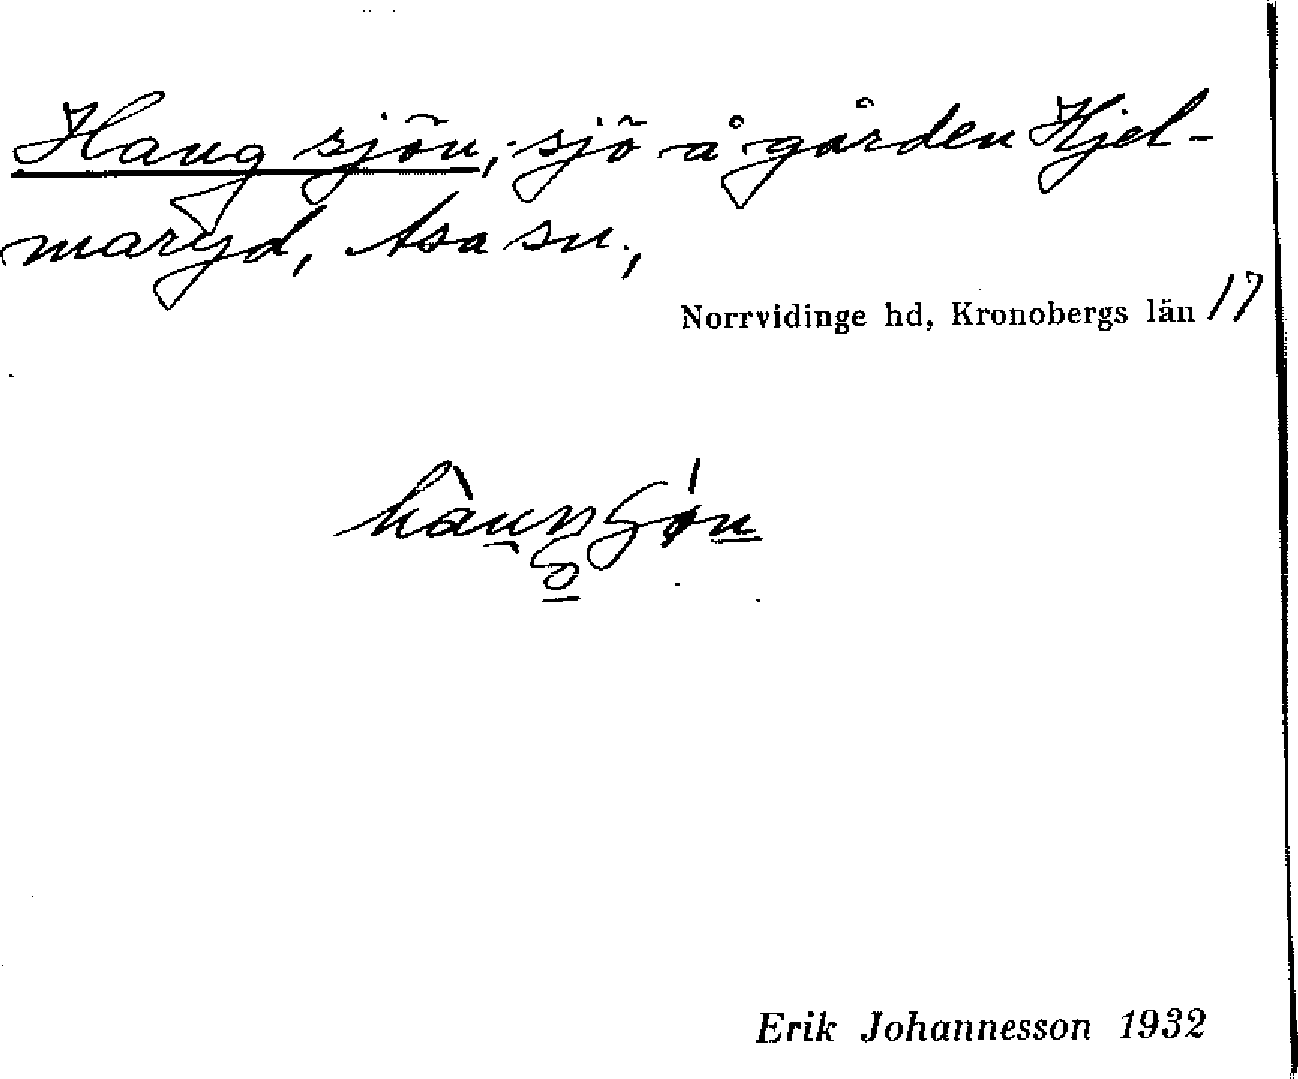 Haug sjön, sjö å gården Hjel-
maryd, Asa sn.,
Norrvidinge hd, Kronobergs län 17
Erik Johannesson 1932